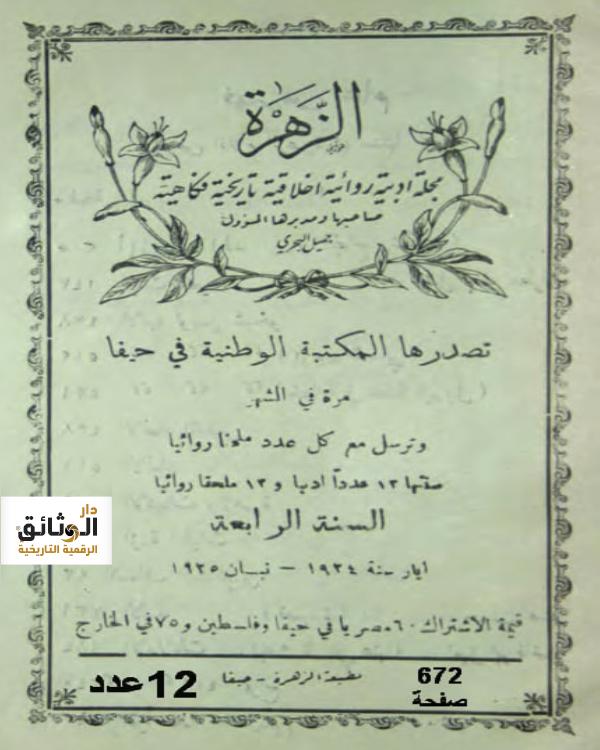 الزَّهرَة
مجلة ادبية روائية اخلاقية تاريخية فكاهية
صاحبها ومديرها المسؤول
جميل البحري
تصدرها المكتبة الوطنية في حيفا
مرة في الشهر
وترسل مع كل عدد ملحقا روائيا
سنتها ١٢ عدداً ادبيا و ١٢ ملحقا روائيا
السنة الرابعة
ايار سنة ١٩٢٤ – نيسان ١٩٢٥
قيمة الاشتراك ٦٠ مصريا في حيفا وفلسطين و ٧٥ في الخارج
مطبعة الزهرة – حيفا
672
صفحة
12 عدد
دار
الوثائق
الرقمية التاريخية